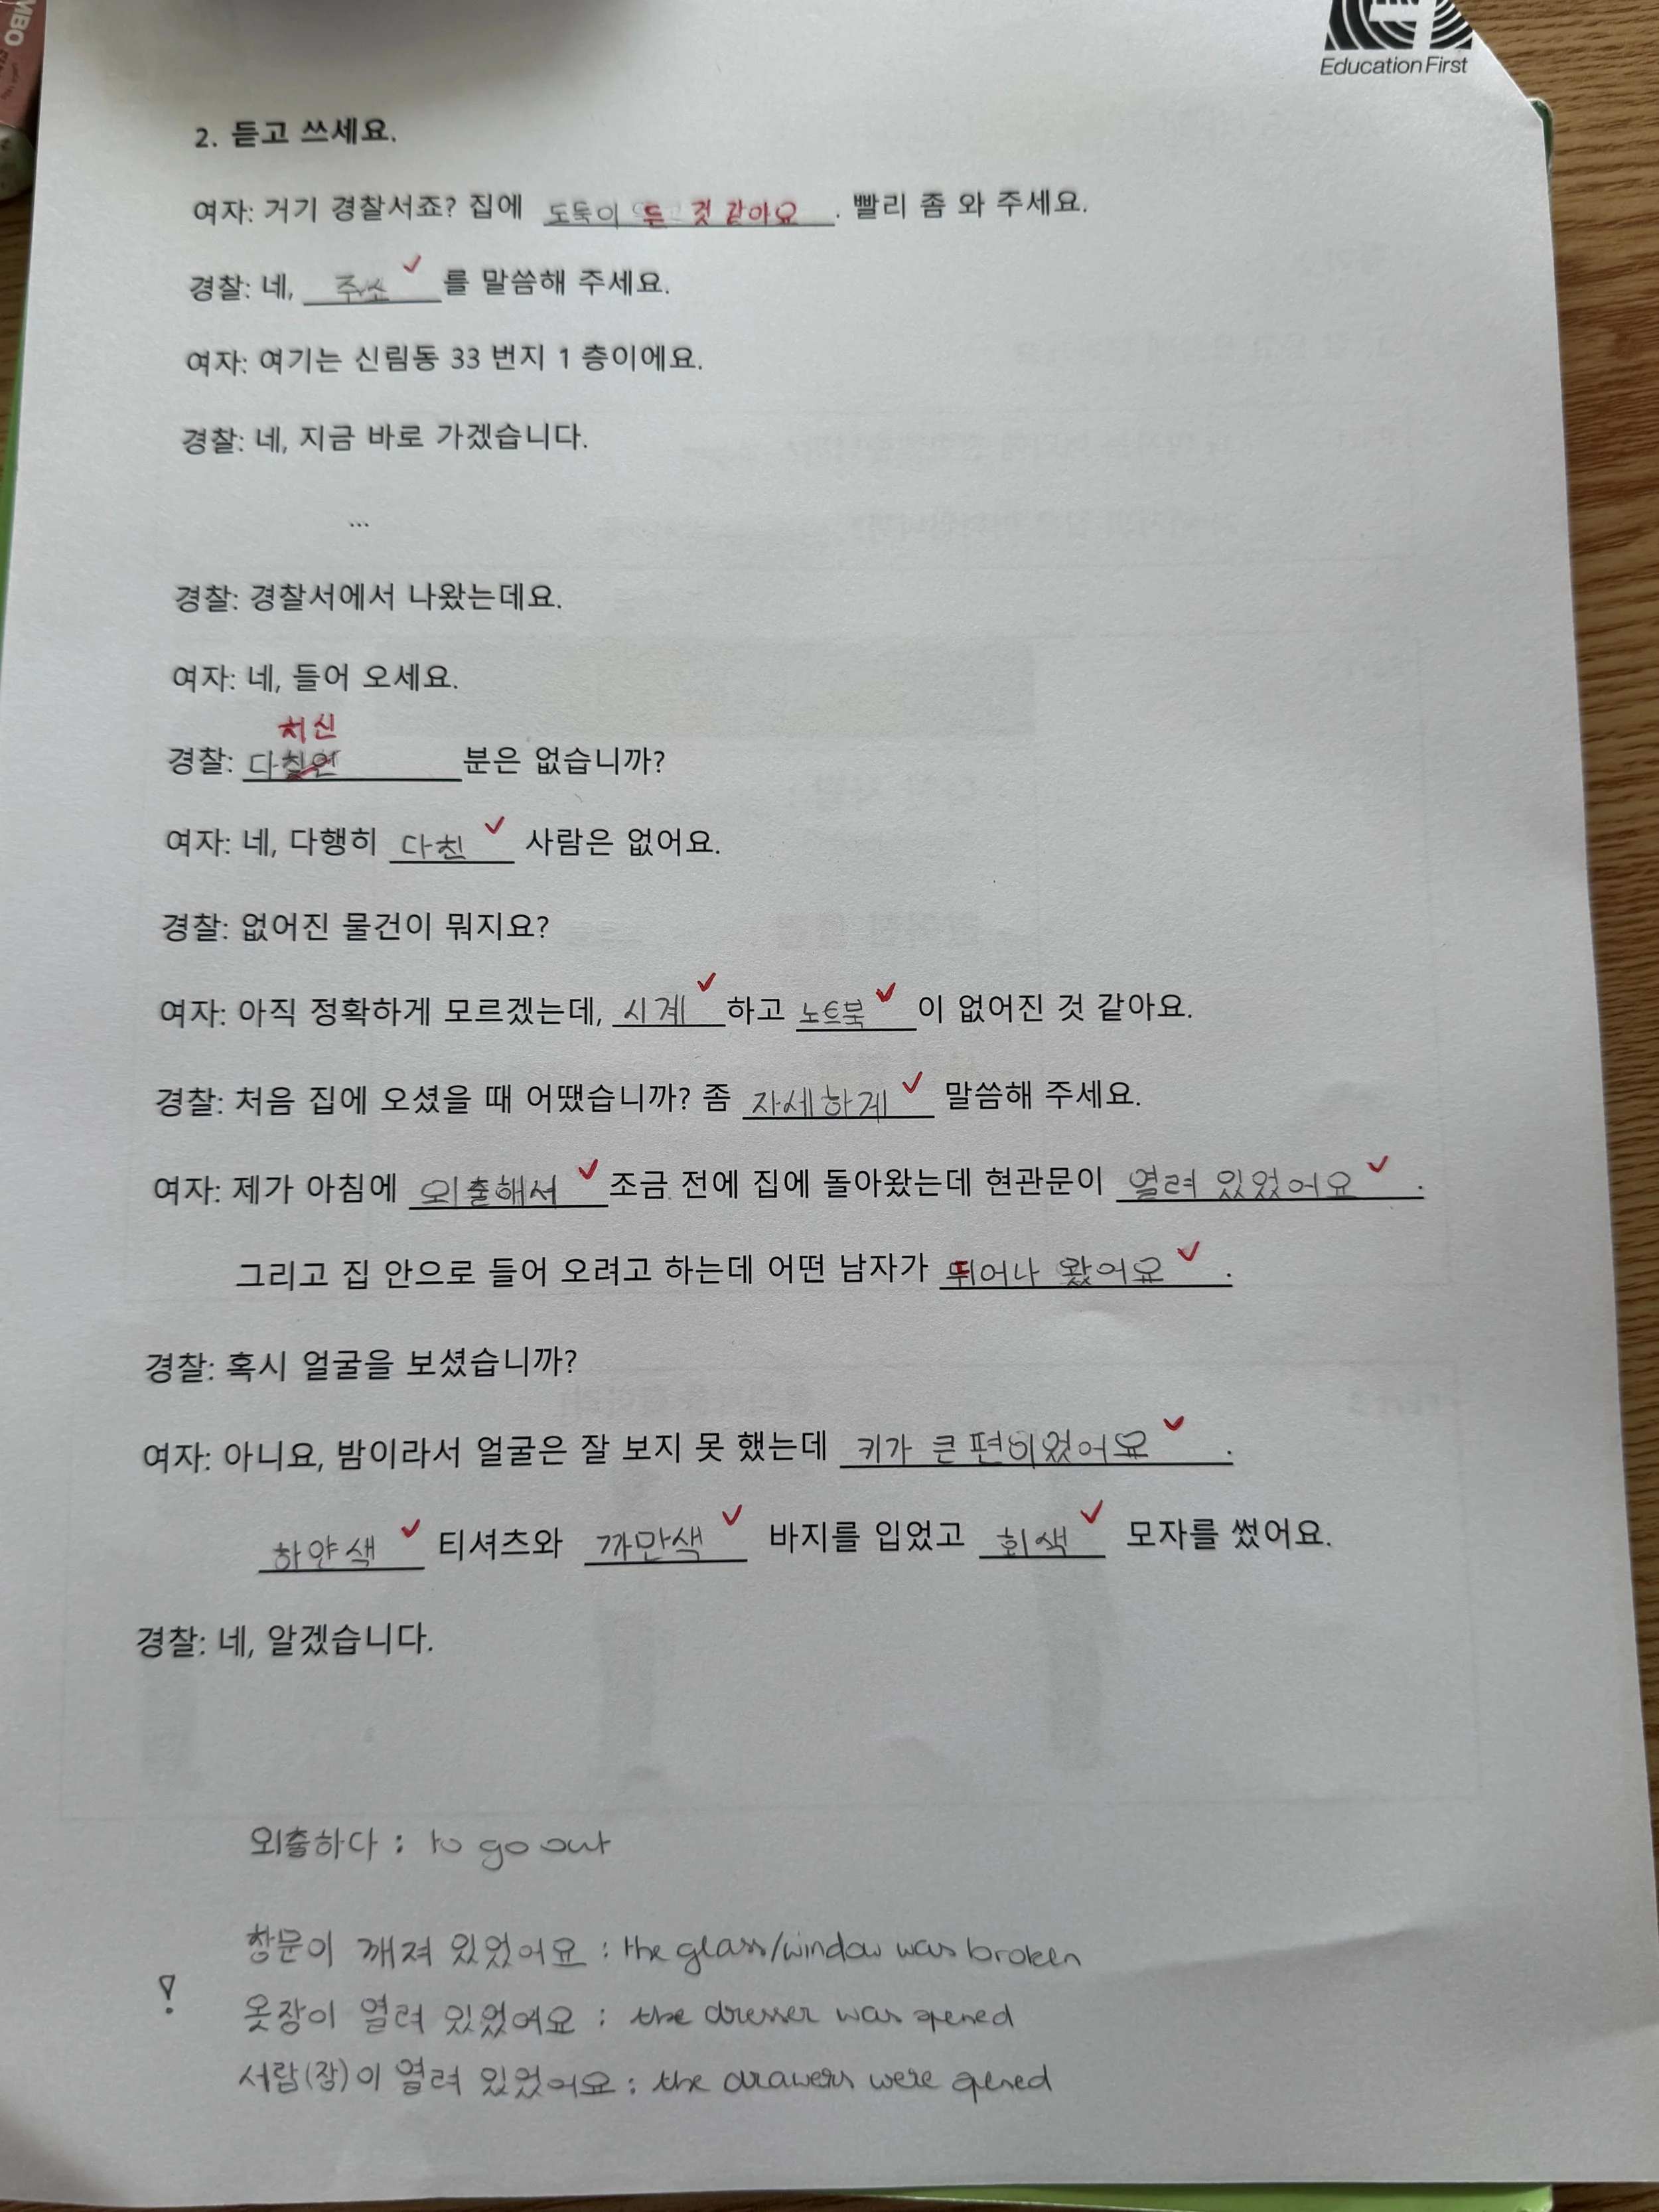 MBO
Education First
2. 듣고 쓰세요.
여자: 거기 경찰서죠? 집에 도둑이 든 것 같아요. 빨리 좀 와 주세요.
경찰: 네, 주소를 말씀해 주세요.
여자: 여기는 신림동 33 번지 1 층이에요.
경찰: 네, 지금 바로 가겠습니다.
...
경찰: 경찰서에서 나왔는데요.
여자: 네, 들어 오세요.
치신
경찰: 다 분은 없습니까?
여자: 네, 다행히 다친 사람은 없어요.
경찰: 없어진 물건이 뭐지요?
여자: 아직 정확하게 모르겠는데, 시계하고 노트북이 없어진 것 같아요.
경찰: 처음 집에 오셨을 때 어땠습니까? 좀 자세하게 말씀해 주세요.
여자: 제가 아침에 외출해서 조금 전에 집에 돌아왔는데 현관문이 열려 있었어요.
그리고 집 안으로 들어 오려고 하는데 어떤 남자가 뛰어나 왔어요.
경찰: 혹시 얼굴을 보셨습니까?
여자: 아니요, 밤이라서 얼굴은 잘 보지 못 했는데 키가 큰 편이었어요.
하얀색 티셔츠와 까만색 바지를 입었고 회색 모자를 썼어요.
경찰: 네, 알겠습니다.
외출하다 : to go out
창문이 깨져 있었어요 : the glass/window was broken
! 옷장이 열려 있었어요 : the dresser was opened
서랍(장)이 열려 있었어요 : the drawers were opened